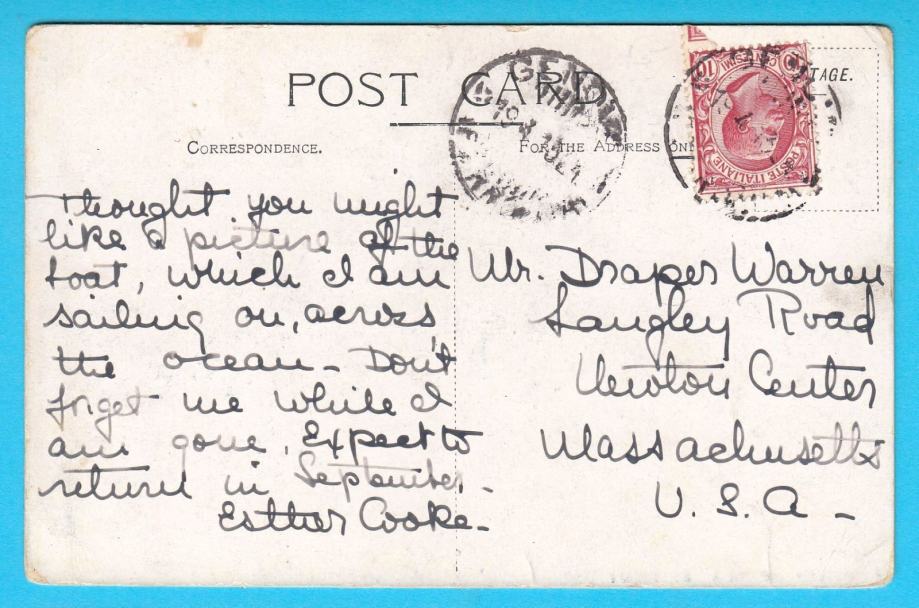 POST CARD
CORRESPONDENCE.
FOR THE ADDRESS ONLY
TAGE.
GENOVA
CENTESIMI 10
POSTE ITALIANE
I thought you might
like a picture of the
boat, which I am
sailing on, across
the ocean - Don't
forget me while I
am gone. Expect to
return in September -
Esther Cooke -
Mr. Draper Warren
Langley Road
Newton Center
Massachusetts
U. S. A -